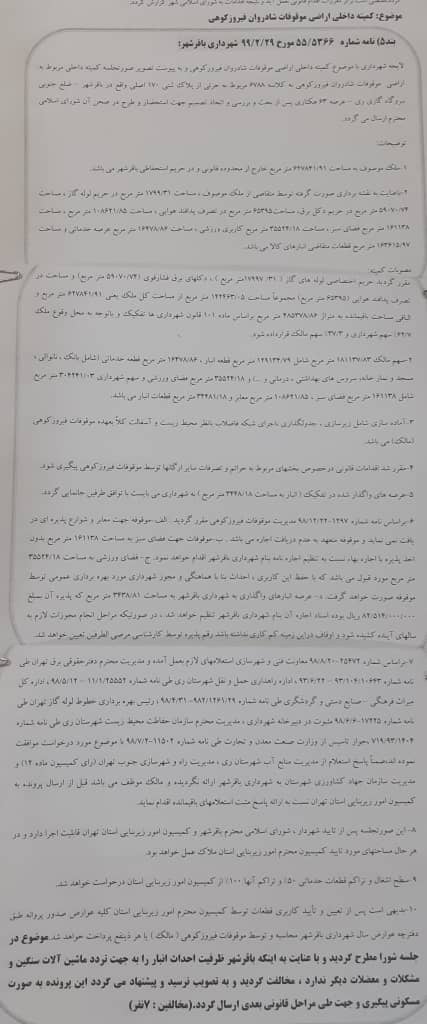 موضوع: کمیته داخلی اراضی موقوفات شادروان فیروزکوهی
بند۵) نامه شماره ۵۵/۵۳۶۶ مورخ ۹۹/۲/۲۹ شهرداری باقرشهر:
لایحه شهرداری با موضوع کمیته داخلی اراضی موقوفات شادروان فیروزکوهی و به پیوست تصویر صورتجلسه کمیته داخلی مربوط به
اراضی موقوفات شادروان فیروزکوهی به کلاسه ۶۷۸۸ مربوط به جزئی از پلاک ثبتی ۱۷۰ اصلی واقع در باقرشهر - ضلع جنوبی
نیروگاه گازی ری - عرصه ۶۳ هکتاری پس از بحث و بررسی و اتخاذ تصمیم جهت استحضار و طرح در صحن آن شورای اسلامی
محترم ارسال می گردد.
توضیحات:
۱-ملک موصوف به مساحت ۶۲۷۸۴۱/۹۱ متر مربع خارج از محدوده قانونی و در حریم استحفاظی باقرشهر می باشد.
۲-باعنایت به نقشه برداری صورت گرفته توسط متقاضی از ملک موصوف ، مساحت ۱۷۹۹/۳۱ متر مربع در حریم لوله گاز ، مساحت
۵۹۰۷۰/۷۴ متر مربع در حریم دکل برق، مساحت ۶۵۳۹۵ متر مربع در تصرف پدافند هوایی ، مساحت ۱۰۸۶۲۱/۸۵ متر مربع ، مساحت
۱۶۱۱۳۸ متر مربع فضای سبز ، مساحت ۳۵۵۲۴/۱۸ متر مربع کاربری ورزشی ، مساحت ۱۶۴۷۸/۸۶ متر مربع عرصه خدماتی و مساحت
۱۶۳۶۱۵/۹۷ متر مربع قطعات متقاضی انبارهای کالا می باشد.
مصوبات کمیته:
مقرر گردید حریم اختصاصی لوله های گاز ( ۱۷۹۹۷/۳۱ متر مربع ) ، دکلهای برق فشارقوی (۵۹۰۷۰/۷۴ متر مربع) و مساحت در
تصرف پدافند هوایی (۶۵۳۹۵ متر مربع) مجموعاً مساحت ۱۴۲۴۶۳/۰۵ متر مربع از مساحت کل ملک یعنی ۶۲۷۸۴۱/۹۱ متر مربع و
الباقی مساحت باقیمانده به متراژ ۴۸۵۳۷۸/۸۶ متر مربع براساس ماده ۱۰۱ قانون شهرداری ها تفکیک و باتوجه به محل وقوع ملک
۶۲/۷٪ سهم شهرداری و ۳۷/۳٪ سهم مالک قرارداده شود.
۲-سهم مالک ۱۸۱۱۳۷/۸۳ متر مربع شامل ۱۲۹۱۳۴/۷۹ متر مربع قطعه انبار ، ۱۶۴۷۸/۸۶ متر مربع قطعه خدماتی (شامل بانک ، نانوائی ،
مسجد و نماز خانه، سرویس های بهداشتی ، درمانی و ...) و ۳۵۵۲۴/۱۸ متر مربع فضای ورزشی و سهم شهرداری ۳۰۴۲۴۱/۰۳ متر مربع
شامل ۱۶۱۱۳۸ متر مربع فضای سبز ، ۱۰۸۶۲۱/۸۵ متر مربع معابر و ۳۴۴۸۱/۱۸ متر مربع قطعات انبار می باشد.
۳-آماده سازی شامل زیرسازی ، جدولگذاری باجرای شبکه فاضلاب بانظر محیط زیست و آسفالت کلاً بعهده موقوفات فیروزکوهی
(مالک) می باشد.
۴-مقرر شد اقدامات قانونی درخصوص بخشهای مربوط به حرائم و تصرفات سایر ارگانها توسط موقوفات فیروزکوهی پیگیری شود.
۵-عرصه های واگذار شده در تفکیک ( انبار به مساحت ۳۴۴۸/۱۸ متر مربع ) به شهرداری می بایست با توافق طرفین جانمایی گردد.
۶-براساس نامه شماره ۱۲۹۷-۹۸/۱۲/۲۲ مدیریت موقوفات فیروزکوهی مقرر گردید . الف-موقوفه جهت معابر و شوارع پذیره ای در
یافت نمی نماید و موقوفه متعهد به عدم دریافت اجاره می باشد . ب-موقوفات جهت فضای سبز به مساحت ۱۶۱۱۳۸ متر مربع بدون
اخذ پذیره با اجاره بهاء نسبت به تنظیم اجاره نامه بنام شهرداری باقرشهر اقدام خواهد نمود. ج- فضای ورزشی به مساحت ۳۵۵۲۴/۱۸
متر مربع مورد قبول می باشد که با حفظ این کاربری ، احداث بنا با هماهنگی و مجوز شهرداری مورد بهره برداری عمومی توسط
موقوفه صورت خواهد گرفت. د- عرصه انبارهای واگذاری به شهرداری باقرشهر به مساحت ۳۴۳۸/۸۱ متر مربع که پذیره آن بمبلغ
۸۲/۵۱۴/۰۰۰/۰۰۰ ریال بوده اسناد اجاره آن بنام شهرداری باقرشهر تنظیم خواهد شد ، در صورتیکه مراحل انجام مجوزات لازم به
سالهای آینده کشیده شود و اوقاف دراین زمینه کم کاری نداشته باشد رقم پذیره توسط کارشناسی مرضی الطرفین تعیین خواهد شد.
۷-براساس شماره ۲۵۴۷۲-۹۸/۸/۲۰ معاونت فنی و شهرسازی استعلامهای لازم بعمل آمده و مدیریت محترم دفترحقوقی برق تهران طی
نامه شماره ۹۳/۱۰۴/۱۰۶۶۳-۹۳/۶/۲۲ ، اداره راهداری حمل و نقل شهرستان ری طی نامه شماره ۱۱/۱/۲۵۵۵۴ - ۹۸/۵/۱۲ ، اداره کل
میراث فرهنگی - صنایع دستی و گردشگری طی نامه شماره ۹۸۲/۱۲۶۱/۲۹-۹۸/۴/۳۱ ، رئیس بهره برداری خطوط لوله گاز تهران طی
نامه شماره ۱۷۲۲۵-۹۸/۶/۶ مثبوت در دبیرخانه شهرداری ، مدیریت محترم سازمان حفاظت محیط زیست شهرستان ری طی نامه شماره
۷۱۹/۹۳/۱۴۰۴ ،جواز تاسیس از وزارت صنعت معدن و تجارت طی نامه شماره ۱۱۵۰۲-۹۸/۷/۲ با موضوع مورد درخواست موافقت
نموده اند.ضمناً پاسخ استعلام از مدیریت منابع آب شهرستان ری ، مدیریت راه و شهرسازی جنوب تهران (رای کمیسیون ماده ۱۲) و
مدیریت سازمان جهاد کشاورزی شهرستان به شهرداری باقرشهر ارائه نگردیده و مالک موظف می باشد قبل از ارسال پرونده به
کمیسیون امور زیربنایی استان تهران نسبت به ارائه پاسخ مثبت استعلامهای باقیمانده اقدام نماید.
۸- این صورتجلسه پس از تایید شهردار ، شورای اسلامی محترم باقرشهر و کمیسیون امور زیربنایی استان تهران قابلیت اجرا دارد و در
هر حال مساحتهای مورد تایید کمیسیون محترم امور زیربنایی استان ملاک عمل خواهد بود.
۹-سطح اشغال و تراکم قطعات خدماتی ۵۰٪ و تراکم آنها ۱۰۰٪ از کمیسیون امور زیربنایی استان درخواست خواهد شد.
۱۰-بدیهی است پس از تعیین و تأیید کاربری قطعات توسط کمیسیون محترم امور زیربنایی استان کلیه عوارض صدور پروانه طبق
دفترچه عوارض سال شهرداری باقرشهر محاسبه و توسط موقوفات فیروزکوهی ( مالک ) یا هر ذینفع پرداخت خواهد شد.موضوع در
جلسه شورا مطرح گردید و با عنایت به اینکه باقرشهر ظرفیت احداث انبار را به جهت تردد ماشین آلات سنگین و
مشکلات و معضلات دیگر ندارد ، مخالفت گردید و به تصویب نرسید و پیشنهاد می گردد این پرونده به صورت
مسکونی پیگیری و جهت طی مراحل قانونی بعدی ارسال گردد.(مخالفین : ۷نفر)